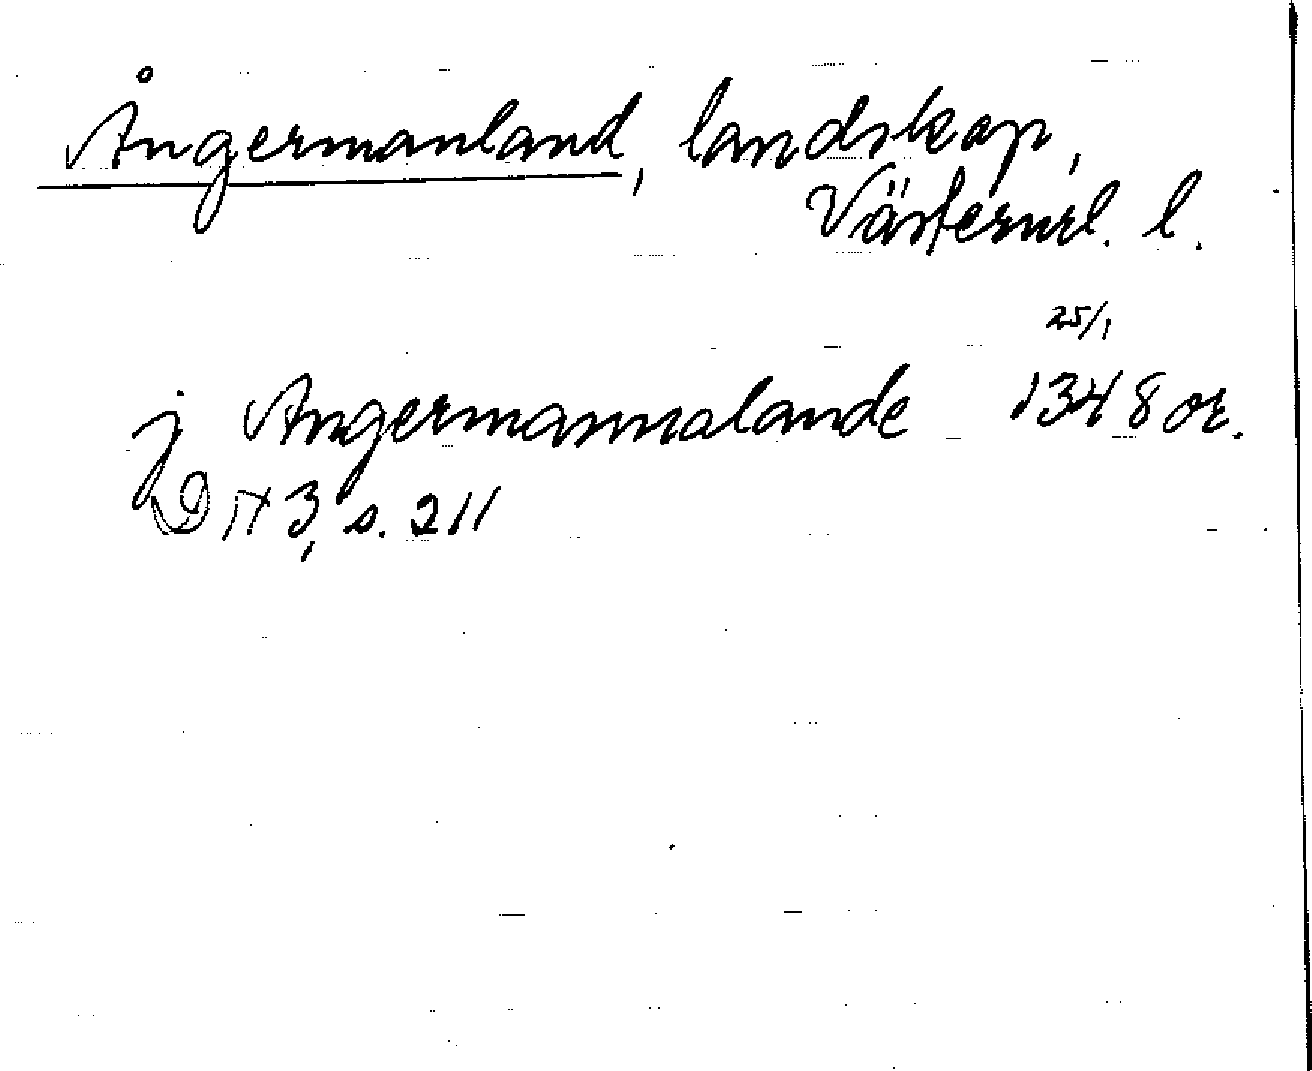 Ångermanland, landskap,
Västernrl. l.
25/1
j Angermannalande 1348 or.
DN 3, s. 211